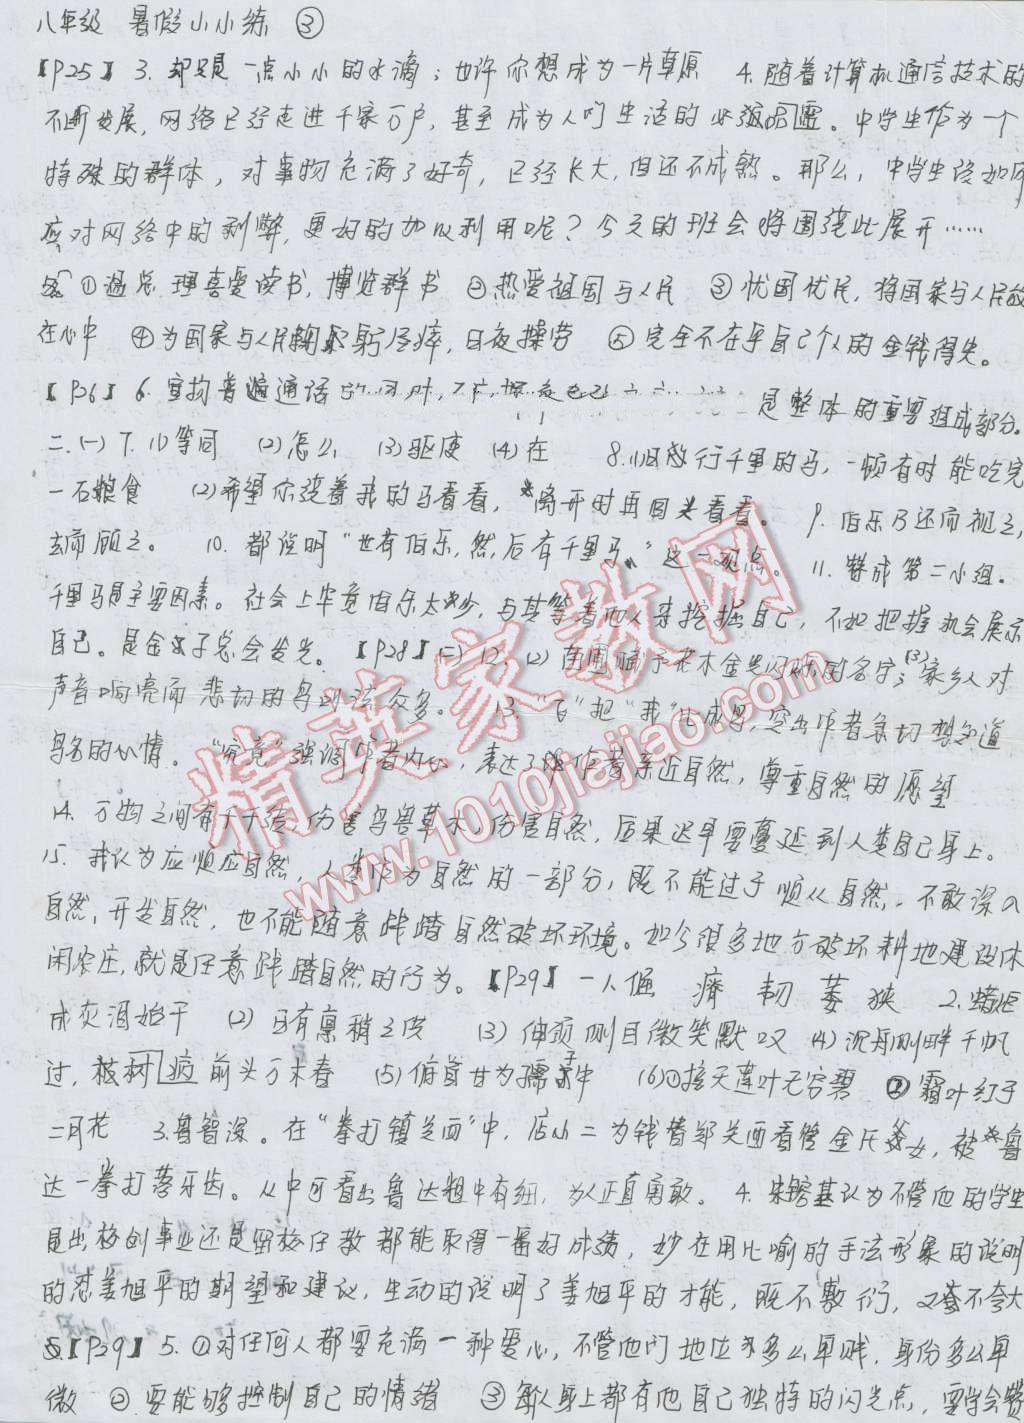 八年级 暑假小小练 ③
【P25】 3. 却只是一点小小的水滴；也许你想成为一片草原 4. 随着计算机通信技术的
不断发展，网络已经走进千家万户，甚至成为人们生活的必须品。中学生作为一个
特殊的群体，对事物充满了好奇，已经长大，但还不成熟。那么，中学生该如何
应对网络中的利弊，更好的加以利用呢？今天的班会将围绕此展开……
①温总理喜爱读书，博览群书 ②热爱祖国与人民 ③忧国忧民，将国家与人民放
在心中 ④为国家与人民鞠躬尽瘁，日夜操劳 ⑤完全不在乎自己个人的金钱得失。
【P26】 6. 宣扬普通话的同时， 是整体的重要组成部分。
二.(一) 7. (1)等同 (2)怎么 (3)驱使 (4)在 8. (1)日行千里的马，一顿有时能吃完
一石粮食 (2)希望你绕着我的马看看，离开时再回头看看。 9. 伯乐乃还而视之，
去而顾之。 10. 都说明“世有伯乐，然后有千里马。”这一观点。 11. 赞成第二小组。
千里马是主要因素。社会上毕竟伯乐太少，与其等着他人来挖掘自己，不如把握机会展示
自己。是金子总会发光。 【P28】(二) 12. (2) 周围赋予花木金光闪烁的名字；(3)家乡人对
声音响亮而悲切的鸟叫法众多。 13. “飞”把“我”比成鸟，突出作者急切想知道
鸟名的心情。“究竟”强调作者内心，表达了作者亲近自然，尊重自然的愿望
14. 万物之间有千千结，伤害鸟兽草木，伤害自然，后果迟早要蔓延到人类自己身上。
15. 我认为应顺应自然，人类作为自然的一部分，既不能过于顺从自然，不敢深入
自然，开发自然，也不能随意践踏自然破坏环境。如今很多地方破坏耕地建设休
闲农庄，就是任意践踏自然的行为。【P29】 一、 倔 瘠 韧 萎 狭 2. 蜡炬
成灰泪始干 (2) 日有廪稍之供 (3) 伸颈侧目微笑默叹 (4) 沉舟侧畔千帆
过，病树前头万木春 (5) 俯首甘为孺子牛 (6)①接天莲叶无穷碧 ②霜叶红于
二月花 3. 鲁智深。在“拳打镇关西”中，店小二为钱替郑关西看管金氏父女，被鲁
达一拳打落牙齿。从中可看出鲁达粗中有细，为人正直勇敢。 4. 朱镕基认为不管他的学生
是出校创事业还是留校任教都能取得一番好成绩，妙在用比喻的手法形象的说明
的对姜旭平的期望和建议，生动的说明了姜旭平的才能，既不敷衍，又不夸大
【P29】 5. ①对任何人都要充满一种爱心，不管他们地位多么卑贱，身份多么卑
微 ②要能够控制自己的情绪 ③每人身上都有他自己独特的闪光点，要学会赞
精英家教网
www.1010jiajiao.com